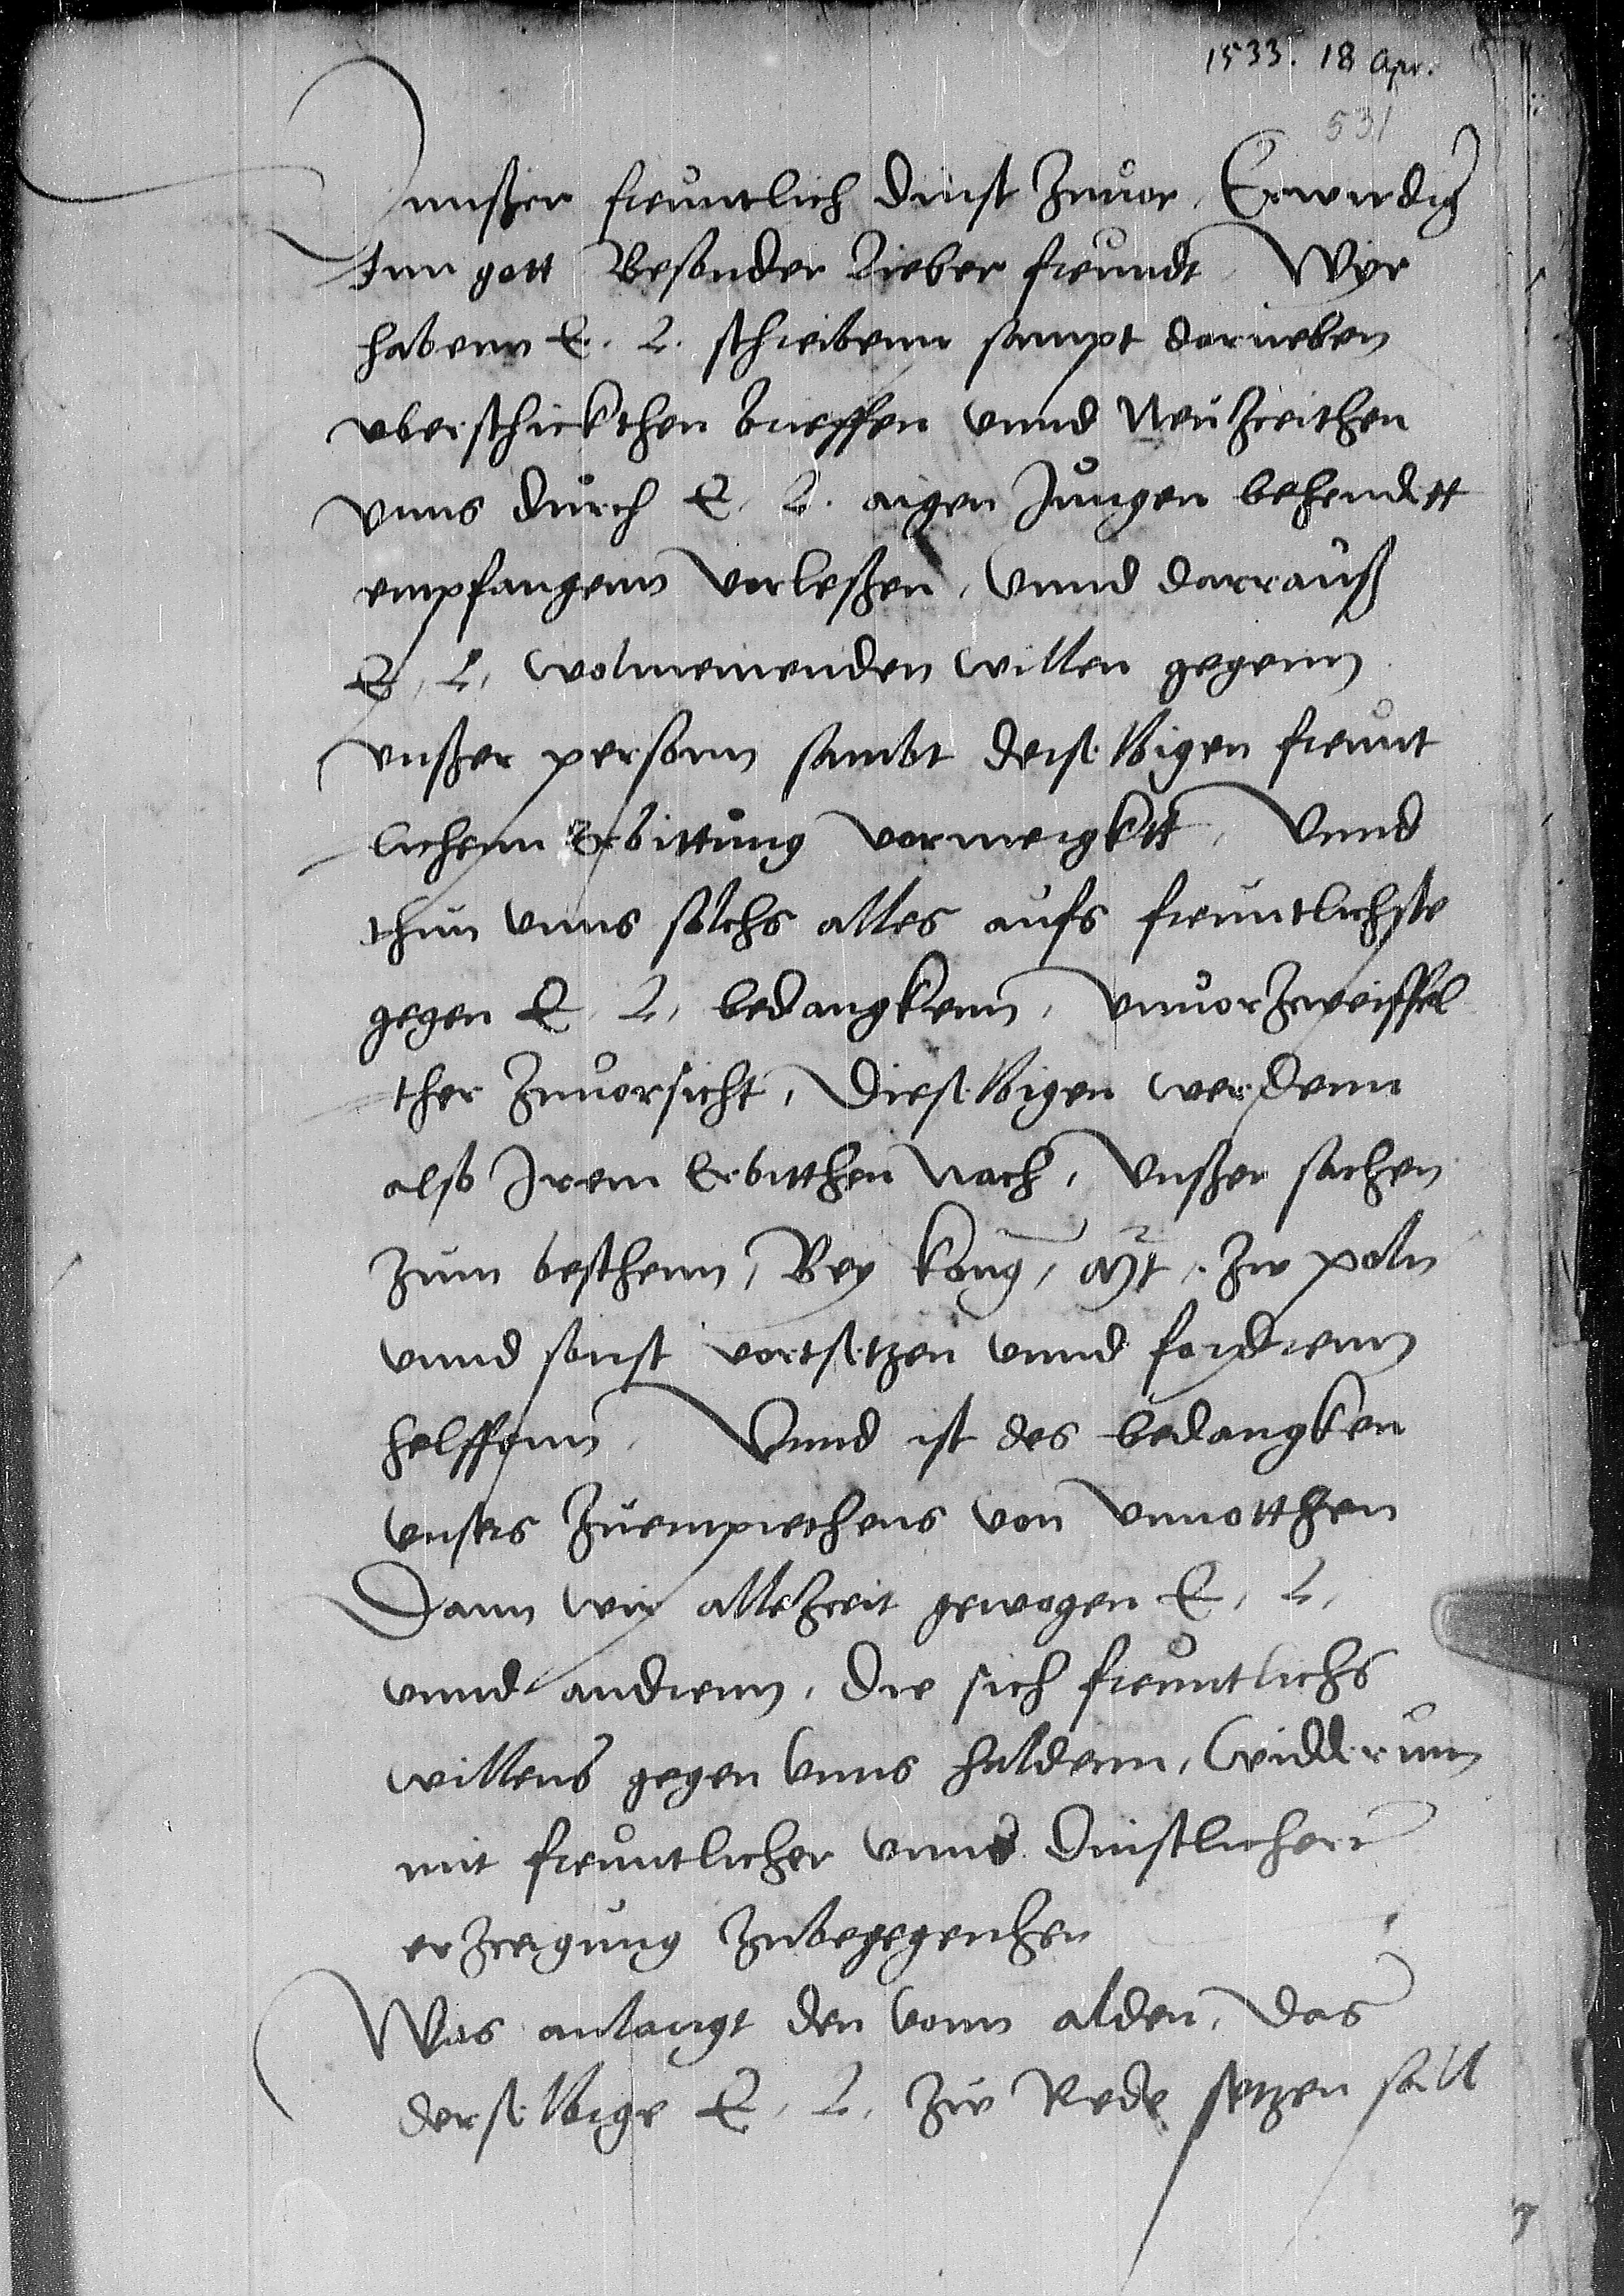 1533. 18 Apr.
531
Vnnßer freuntlich dinst Zuuor, Erwirdig
Inn gott Besonder lieber freundt, Wyr
habenn E. L. schreibenn sampt darneben
vberschickthen brieffen vnnd Neuzeithen
vnns durch E. L. aigen Jungen behendett
empfangenn vorleßen, vnnd darrauß
E, L, wolmeinenden willen gegenn
vnßer personn sambt derselbigen freunt
lichenn Erbittung vormergktt, Vnnd
thun vnns solchs alles aufs freuntlichste
gegen E. L, bedangkenn, vnuorzweiffel
ther Zuuorsicht, Dieselbigen werdenn
also Irem Erbitthen nach, vnßer sachen
zum besthenn, Bey konig, Mt. zw poln
vnnd sonst vortsetzen vnnd fordrenn
helffenn, Vnnd ist des bedangken
vnsers Zuempiethens von vnnotthen
Dann wir allezeit gewogen E, L,
vnnd andrenn, die sich freuntlichs
willens gegen vnns haldenn, widderumm
mit freuntlicher vnnd dinstlicherr
erzeigung zubegegenhen
Was anlangt den vonn alden, das
derselbige E, L, zw Rede setzen soll